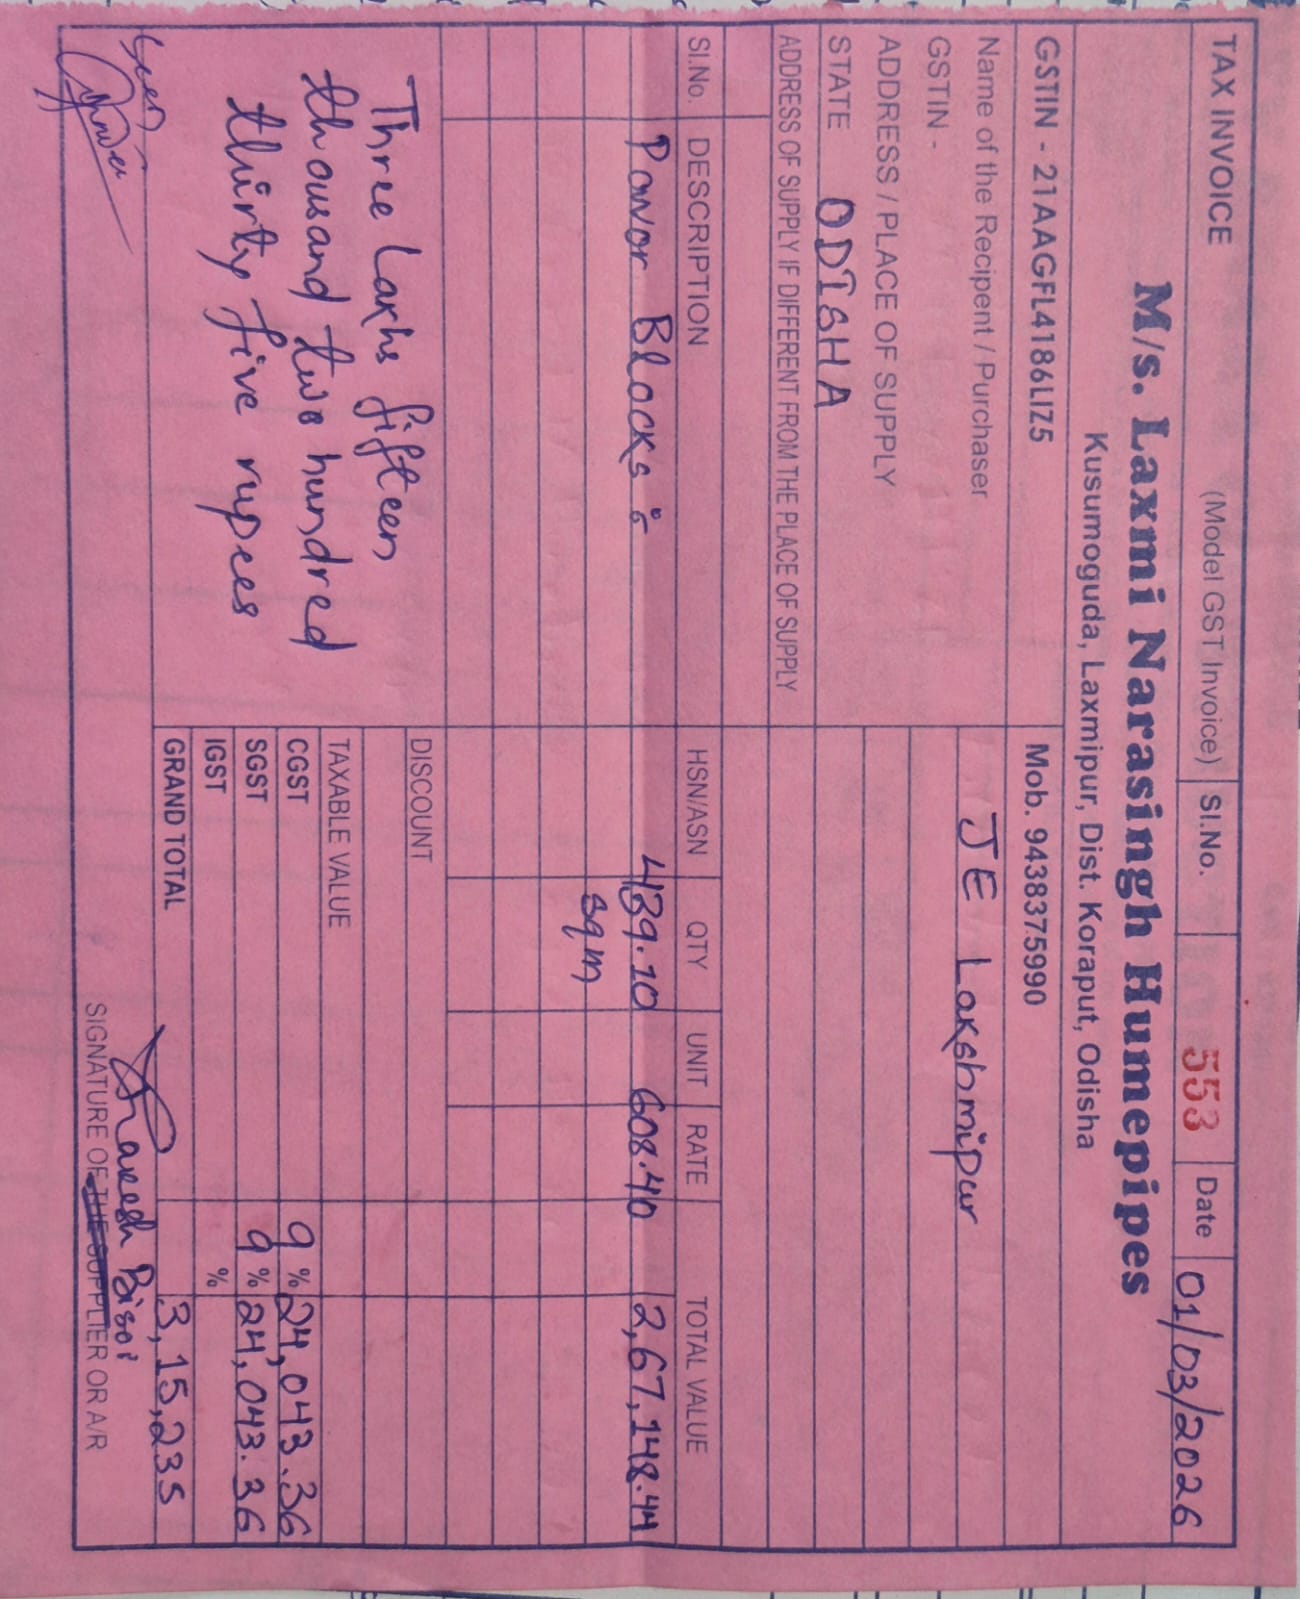 TAX INVOICE (Model GST Invoice) Sl.No. 553 Date 01/03/2026
M/s. Laxmi Narasingh Humepipes
Kusumoguda, Laxmipur, Dist. Koraput, Odisha
GSTIN - 21AAGFL4186LIZ5 Mob. 9438375990
Name of the Recipent / Purchaser JE Lakshmipur
GSTIN -
ADDRESS / PLACE OF SUPPLY
STATE ODISHA
ADDRESS OF SUPPLY IF DIFFERENT FROM THE PLACE OF SUPPLY
Sl.No. DESCRIPTION HSN/ASN QTY UNIT RATE TOTAL VALUE
Pavor Blocks :- 439.10 608.40 2,67,148.44
sqm
DISCOUNT
Three Lakhs fifteen
TAXABLE VALUE
thousand two hundred
CGST 9 % 24,043.36
thirty five rupees
SGST 9 % 24,043.36
IGST %
GRAND TOTAL 3,15,235
Bisoi
SIGNATURE OF THE SUPPLIER OR A/R